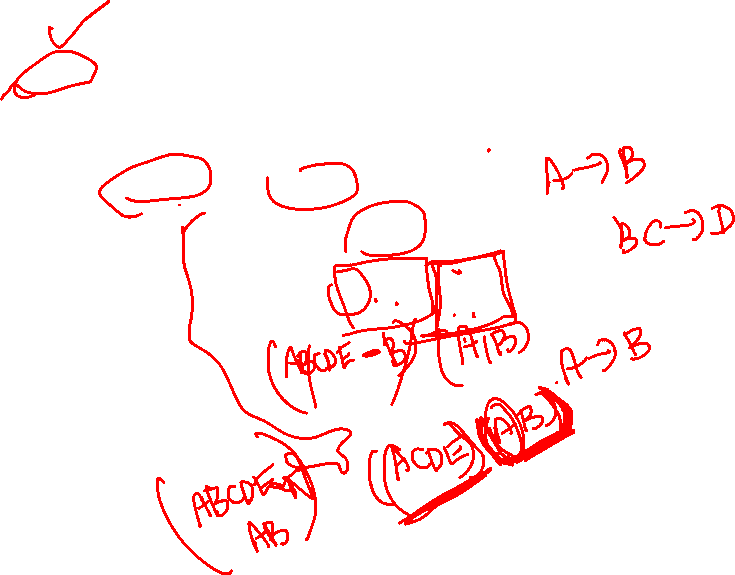 A → B
BC → D
(ABCDE - B) (A, B)
A → B
(ACDE) (AB)
(ABCDE -
AB)